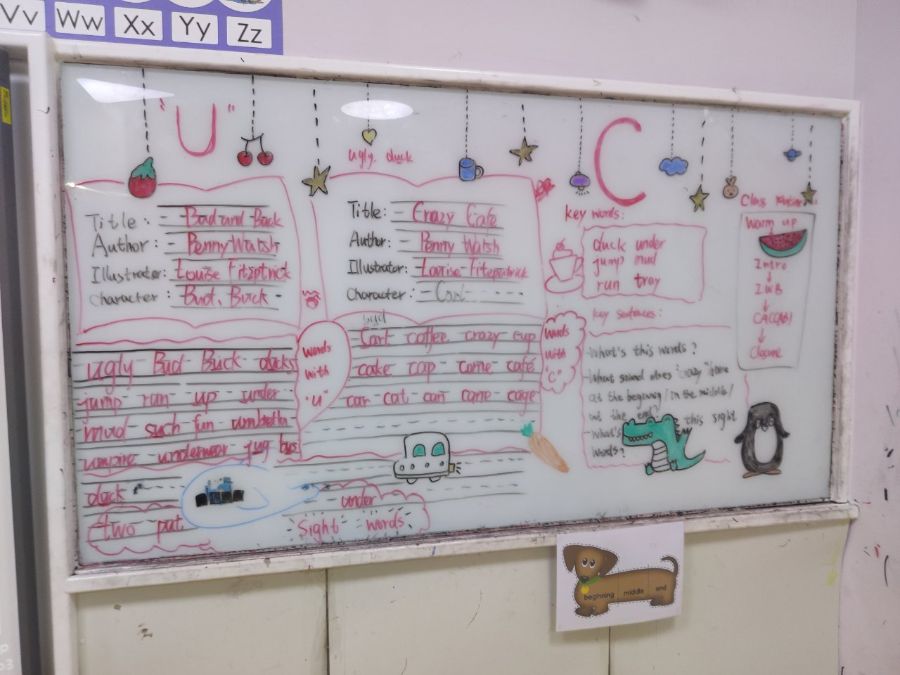 Vv Ww Xx Yy Zz
"U"
ugly duck
C
Title: - Bud and Buck
Author: - Penny Walsh
Illustrator: Louise Fitzpatrick
Character: Bud, Buck -
Title: - Crazy Cafe
Author: - Penny Walsh
Illustrator: - Louise Fitzpatrick
Character: - Carl
key words:
duck under
jump mud
run tray
key sentences:
What's this words?
at the beginning/in the middle/
at the end?
What's this sight
words?
Class
Warm up
Intro
IWB
Closure
ugly Bud Buck ducks
jump run up under
mud such fun umbrella
umpire underwear jug bus
duck
two put
words
with
"u"
Carl coffee crazy cup
cake cap came cafe
car cat can cane cage
words
with
"C"
under
Sight words
beginning middle end